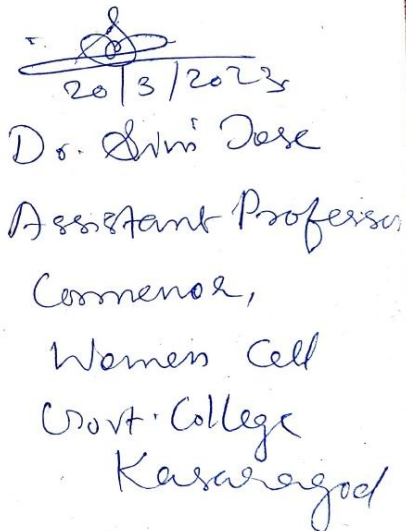 20/3/2023
Dr. Sini Jose
Assistant Professor
Convenor,
Women Cell
Govt. College
Kasaragod